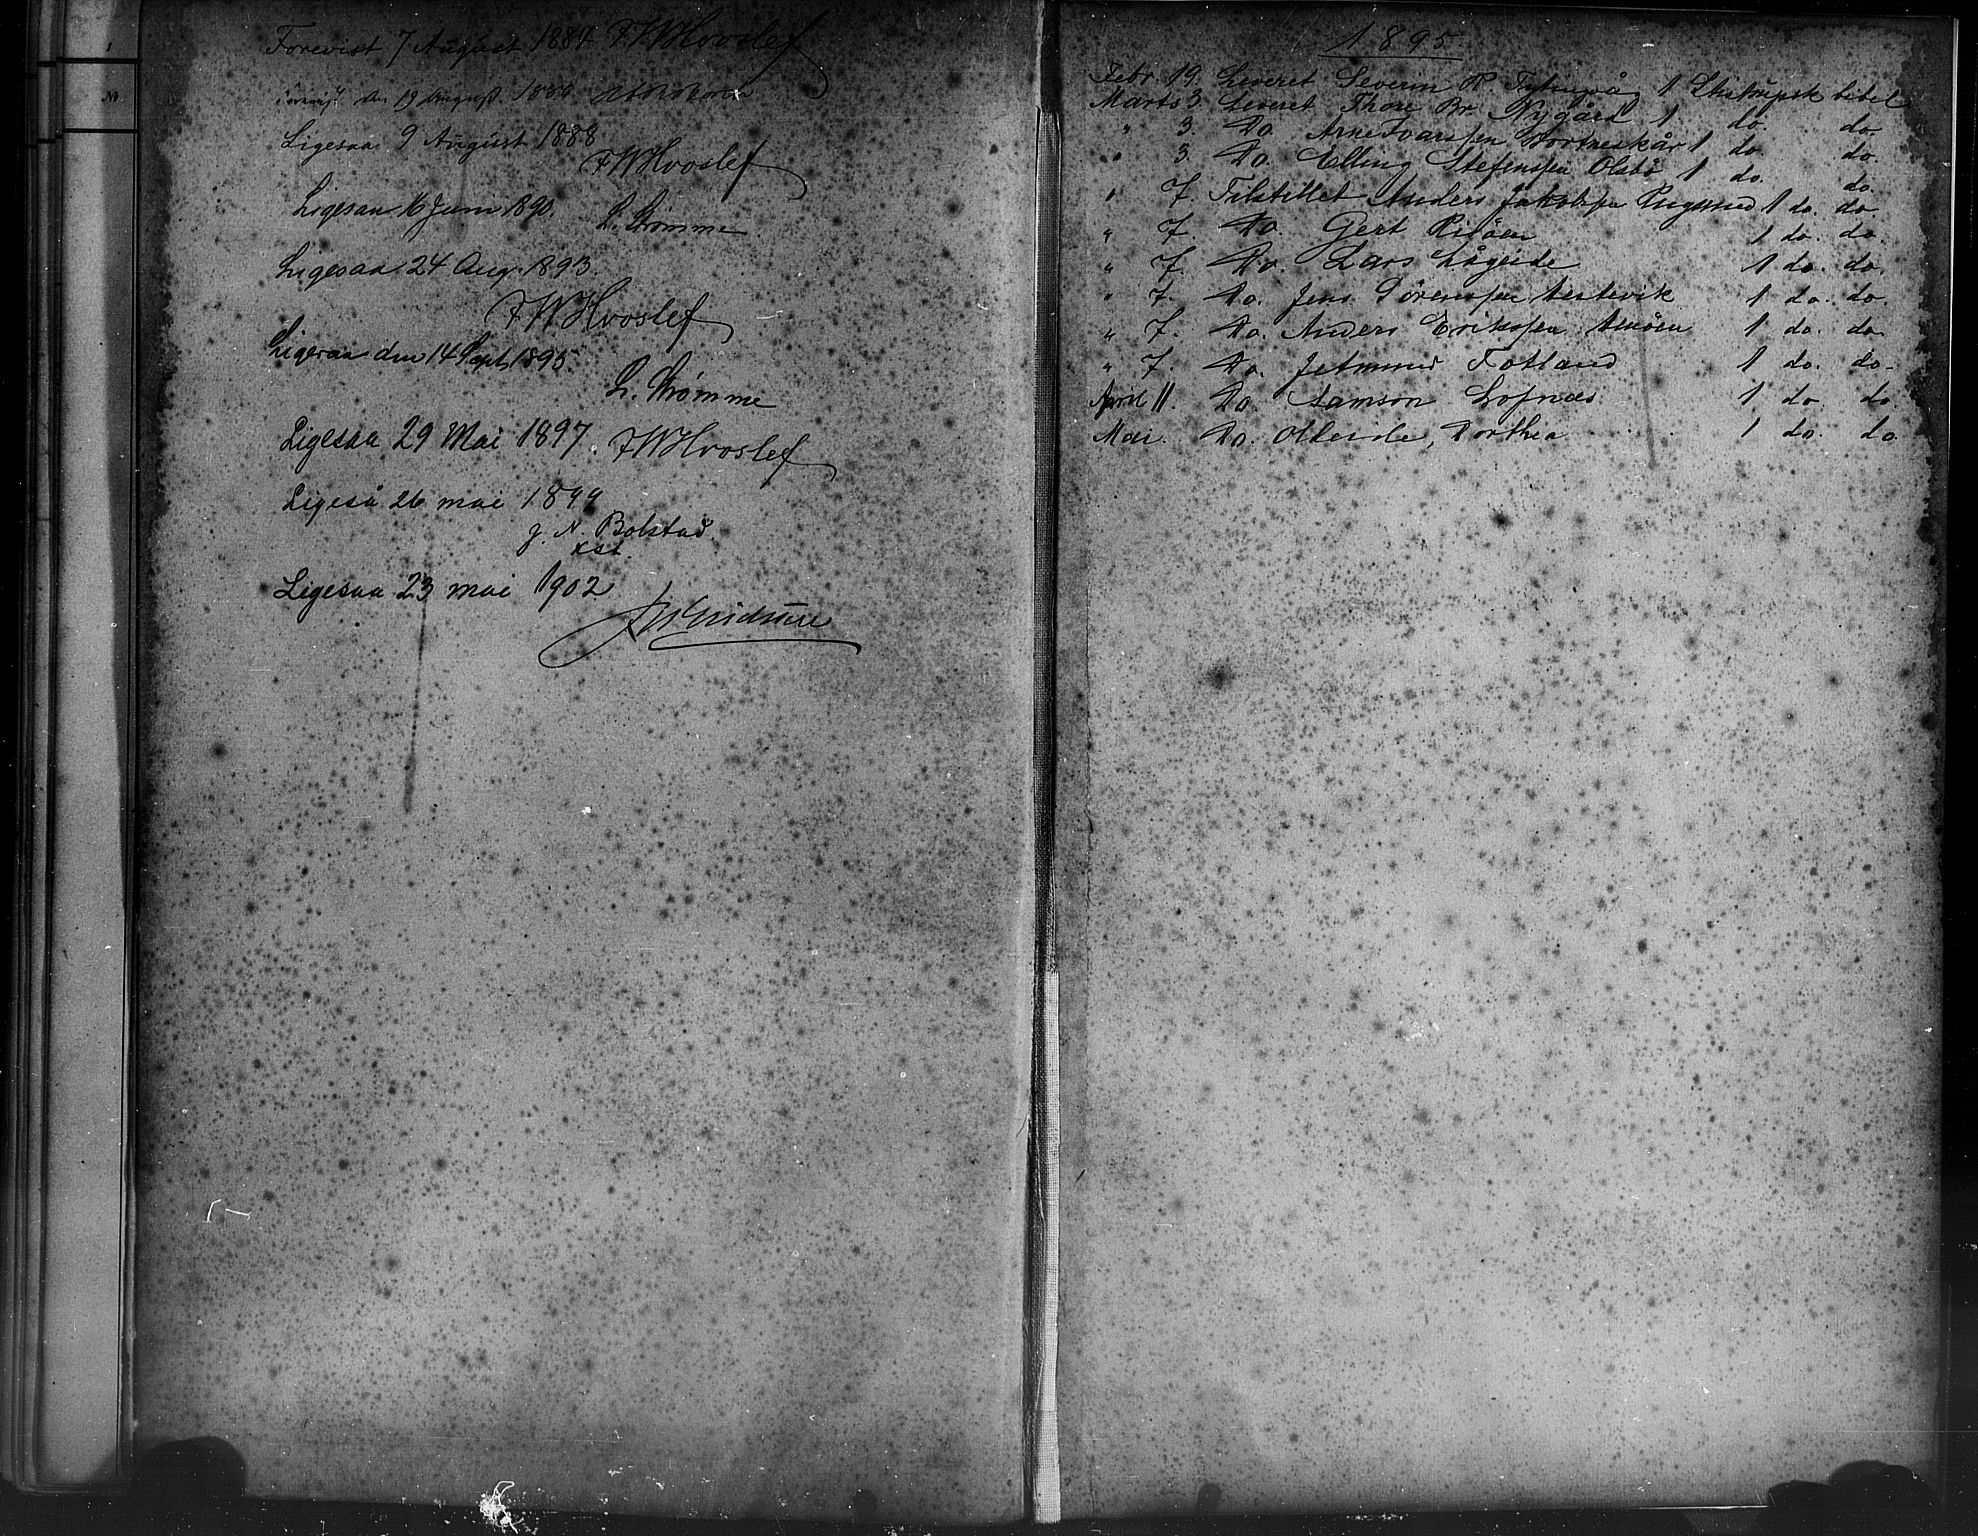 Forevist 7 August 1884 FWHvoslef
den 19 August 1886
Ligesaa 9 August 1888
FWHvoslef
Ligesaa 16 Juni 1890.
L. Strømme
Ligesaa 24 Aug. 1893.
FWHvoslef
Ligesaa den 14 Sept 1895.
L. Strømme
Ligesaa 29 Mai 1897. FWHvoslef
Ligeså 26 mai 1899
J. N. Bolstad
kst.
Ligesaa 23 mai 1902
1895
Febr. 19. Leveret Severin R. 1 bibel
Marts 3. Leveret Thore Br. Nygård 1 do. do
" 3. Do. Arne Ivarssen 1 do do.
" 3. Do. Elling Steffenssen Olsbö 1 do. do.
" 7. Tilstillet Anders Jakobsen 1 do. do.
" 7. Do. Gert Risöen 1 do. do.
" 7. Do. Lars Lågeide 1 do. do.
" 7. Do. Jens Sörenssen 1 do. do.
" 7. Do. Anders Erikssen 1 do. do
" 7. Do. Jetmund Fotland 1 do. do.
April 11. Do. Samson Lofnæs 1 do do.
Mai. Do. Otterde, Dorthea 1 do. do